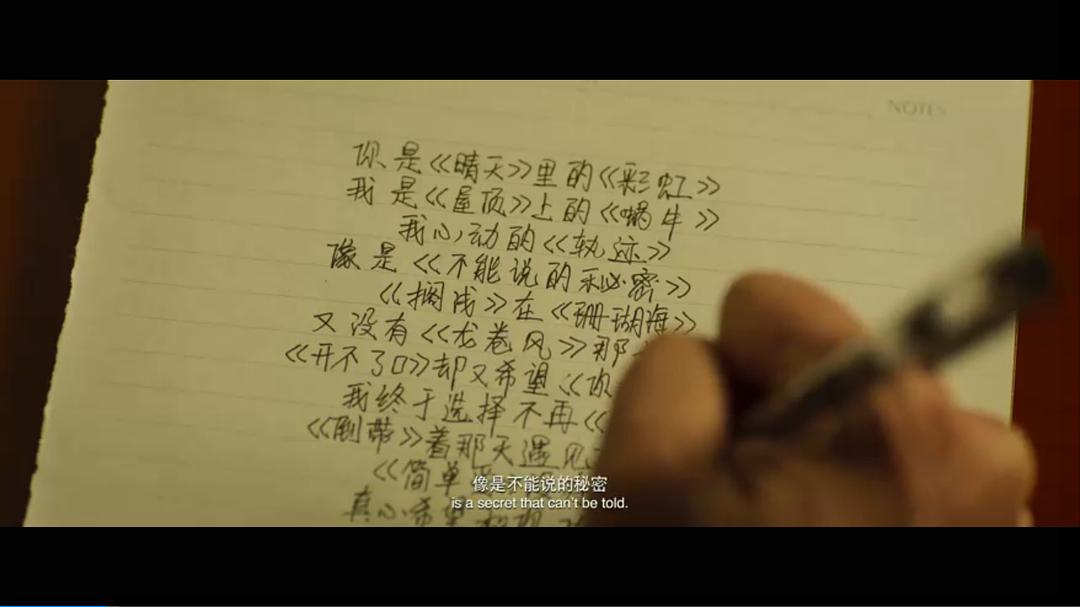 NOTES
你是《晴天》里的《彩虹》
我是《屋顶》上的《蜗牛》
我心动的《轨迹》
像是《不能说的秘密》
《搁浅》在《珊瑚海》
又没有《龙卷风》那
《开不了口》却又希望《你
我终于选择不再《
《倒带》着那天遇见
《简单
真心希望
像是不能说的秘密
is a secret that can't be told.